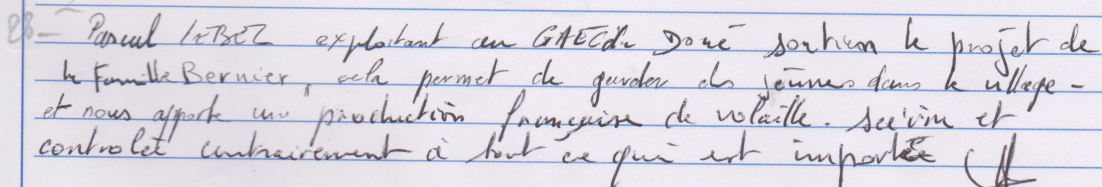 28 - Pascal LEBEL exploitant au GAEC du Doué soutien le projet de
la Famille Bernier, cela permet de garder des jeunes dans le village -
et nous apporte une production française de volaille. suivie et
controlée contrairement à tout ce qui est importée